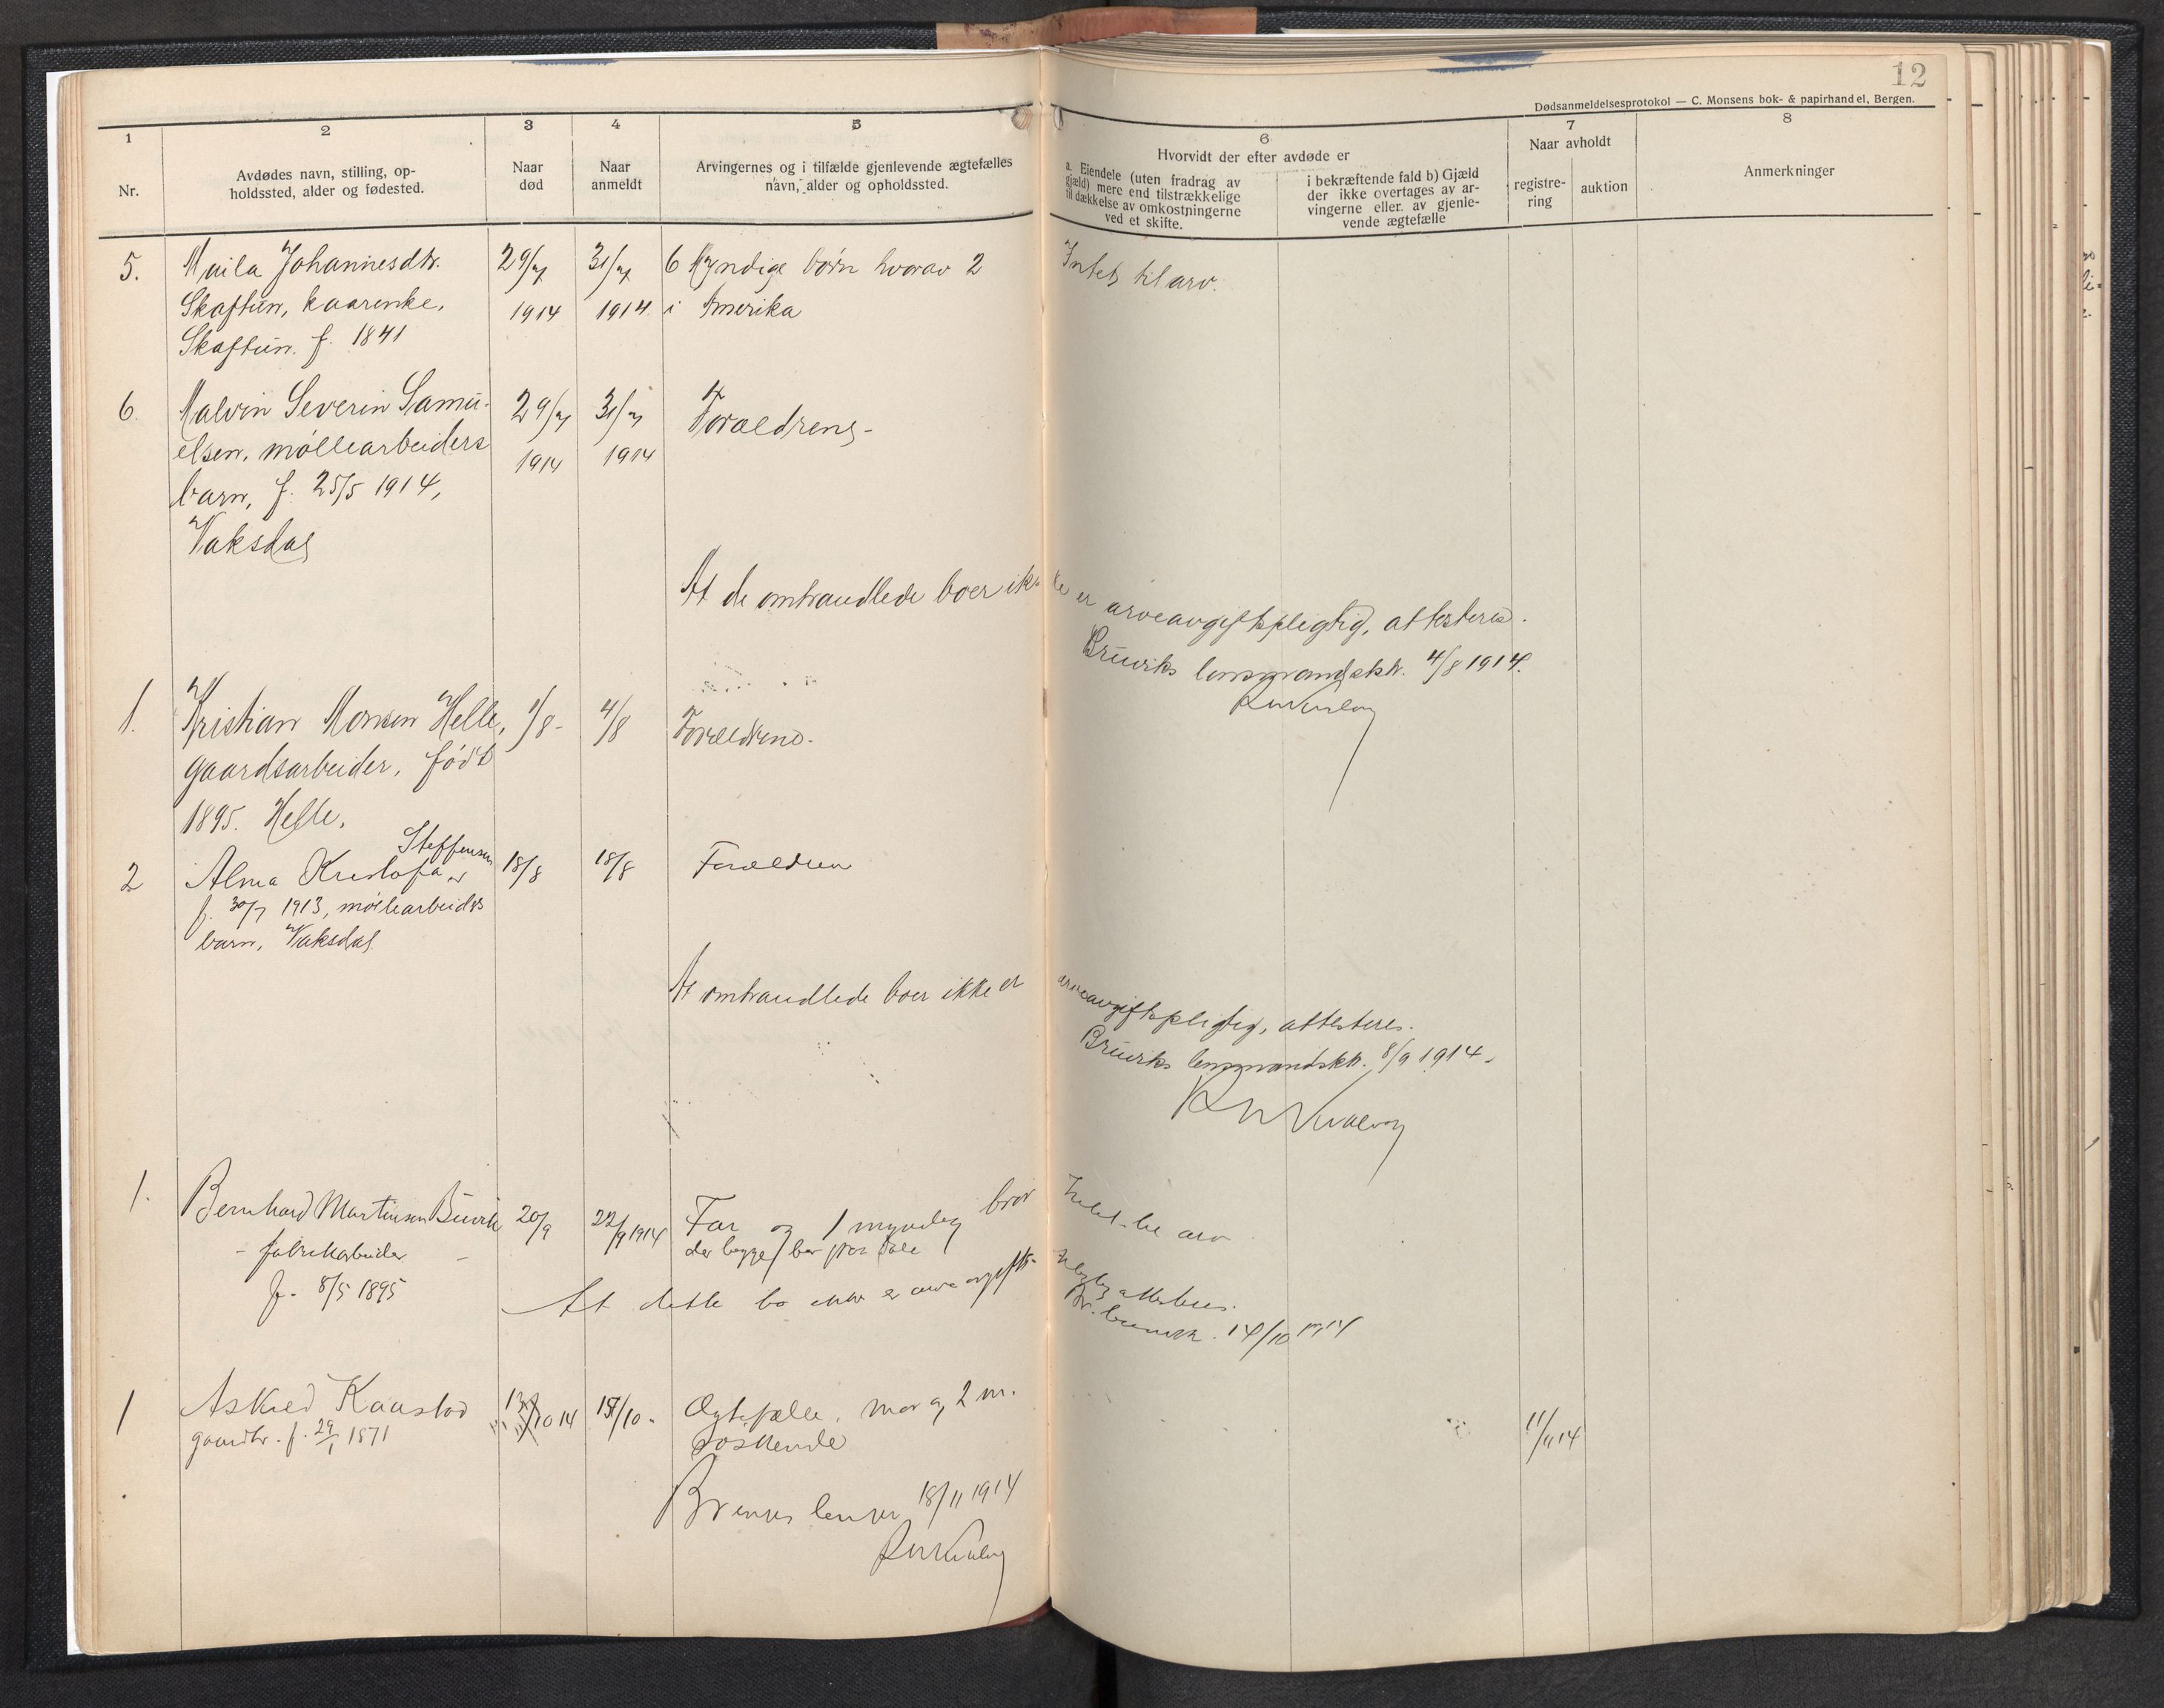 12
Dødsanmeldelsesprotokol — C. Monsens bok- & papirhandel, Bergen.
1
Nr.
2
Avdødes navn, stilling, op-
holdssted, alder og fødested.
3
Naar
død
4
Naar
anmeldt
5
Arvingernes og i tilfælde gjenlevende ægtefælles
navn, alder og opholdssted.
6
Hvorvidt der efter avdøde er
a. Eiendele (uten fradrag av
gjæld) mere end tilstrækkelige
til dækkelse av omkostningerne
ved et skifte.
i bekræftende fald b) Gjæld
der ikke overtages av ar-
vingerne eller av gjenle-
vende ægtefælle
7
Naar avholdt
registre-
ring
auktion
8
Anmerkninger
5. Maila Johannesdtr. 29/7 31/7 6 Myndige børn hvorav 2 Intet til arv.
Skaftun, kaarenke, 1914 1914 i Amerika
Skaftun. f. 1841
6. Malvin Severin Samu- 29/7 31/7 Forældrene-
elsen, møllearbeiders 1914 1914
barn, f. 25/5 1914,
Vaksdal
At de omhandlede boer ikke er arveavgiftspligtig, attesteres.
Bruviks lensmandsktr. 4/8 1914.
1. Kristian Monsen Helle, 1/8- 4/8 Forældrene.
gaardsarbeider, født
1895. Helle.
Steffensen
2 Alma Kristofa 18/8 18/8 Forældren
f. 30/7 1913, møllearbeiders
barn, Vaksdal
At omhandlede boer ikke er arveavgiftspligtig, attesteres.
Bruviks lensmandsktr. 8/9 1914.
1. Bernhard Martinsen 20/9 22/9 1914 Far og 1 myndig bror Intet til arv
- fabrikarbeider - der begge bor paa Dale
f. 8/5 1895
At dette bo ikke er arveavgifts-
pligtig attesteres.
14/10 1914
1 Askild 13/10 14 15/10. Ægtefælle, mor og 2 m. 11/11 14
gaardbr. f. 29/1 1871 søskende
18/11 1914